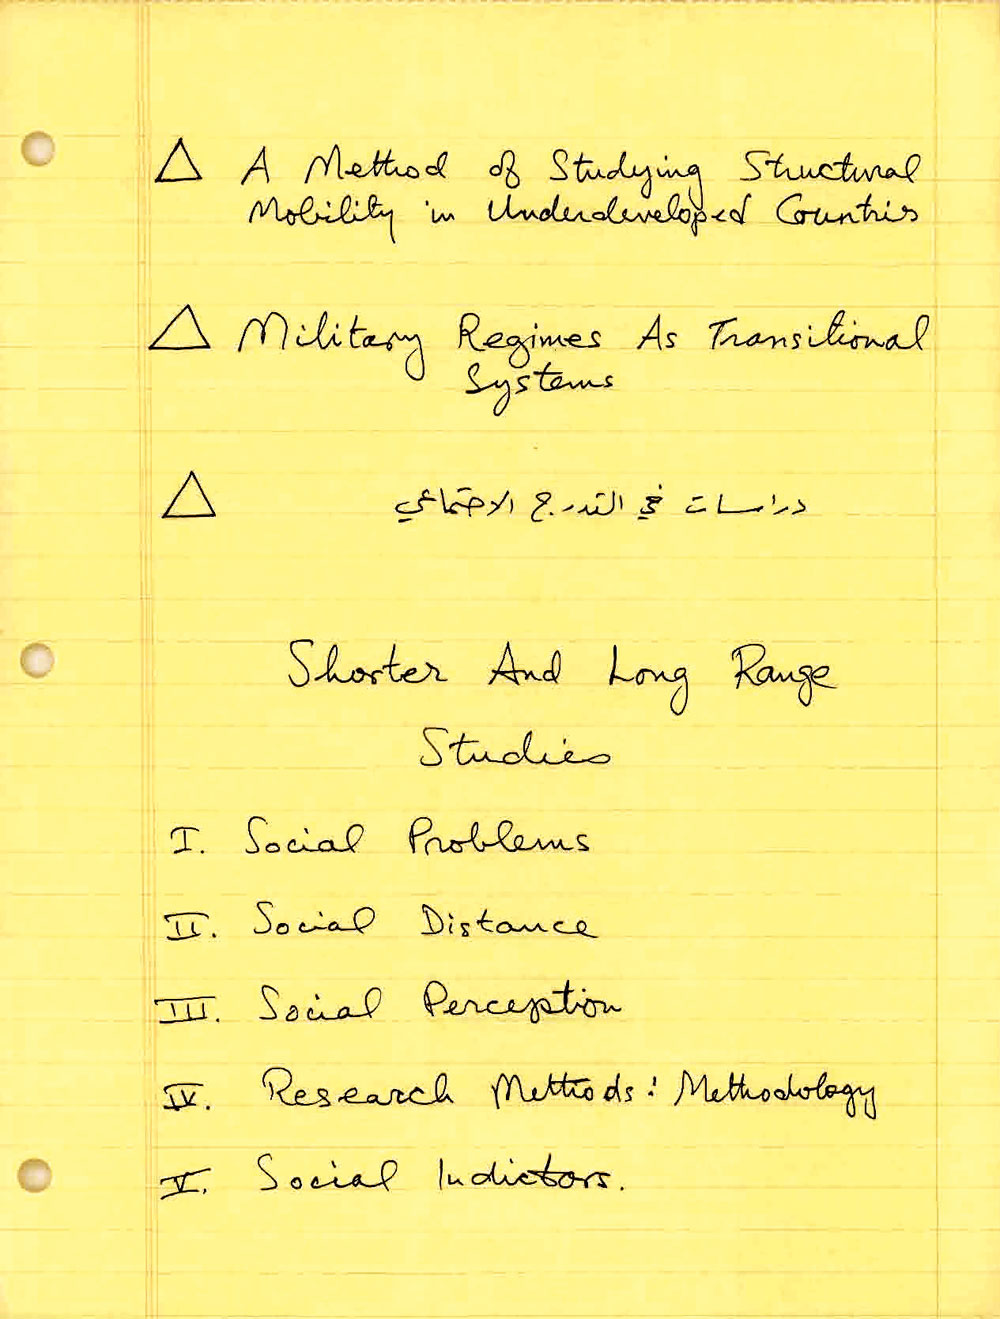 △ A Method of Studying Structural
Mobility in Underdeveloped Countries
△ Military Regimes As Transitional
Systems
△ دراسات في التدرج الاجتماعي
Shorter And Long Range
Studies
I. Social Problems
II. Social Distance
III. Social Perception
IV. Research Methods: Methodology
V. Social Indictors.